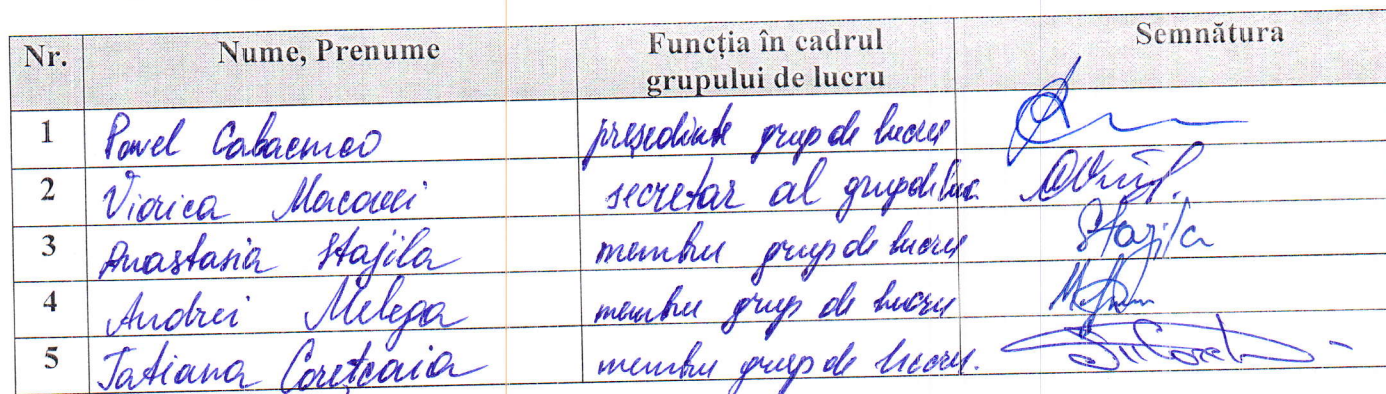 Nr. Nume, Prenume Funcția în cadrul grupului de lucru Semnătura
1 Pavel președinte grup de lucru
2 Viorica Macovei secretar al grup de luc
3 Anastasia Stajila membru grup de lucru Stajila
4 Andrei Melega membru grup de lucru
5 Tatiana Corețcaia membru grup de lucru.